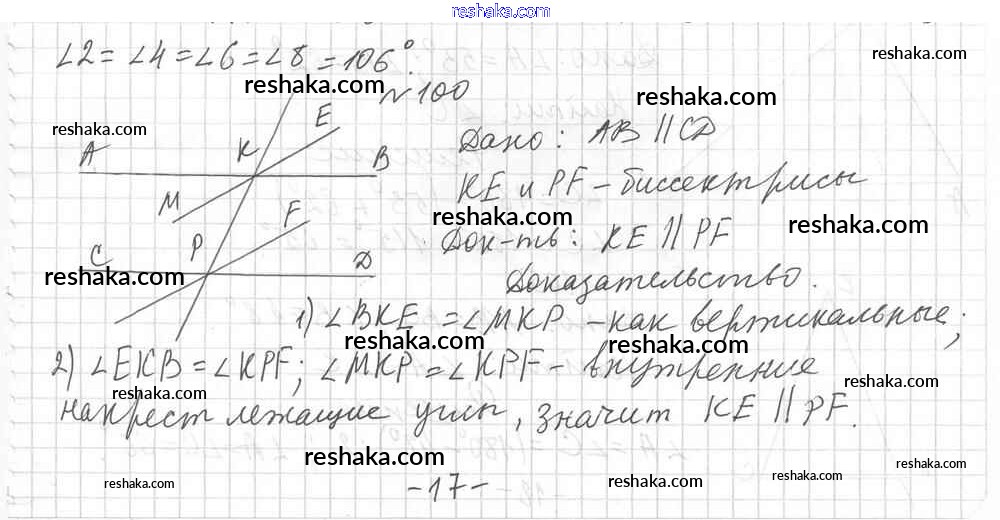 reshaka.com
∠2 = ∠4 = ∠6 = ∠8 = 106°.
reshaka.com
reshaka.com
№ 100
reshaka.com
reshaka.com
Дано: AB || CD
A K E B
KE и PF – биссектрисы
M
reshaka.com
reshaka.com
Док-ть: KE || PF
C P F D
reshaka.com
Доказательство.
1) ∠BKE = ∠MKP – как вертикальные;
reshaka.com
reshaka.com
2) ∠EKB = ∠KPF; ∠MKP = ∠KPF – внутренние
reshaka.com
reshaka.com
накрест лежащие углы, значит KE || PF.
reshaka.com
reshaka.com
reshaka.com
reshaka.com
reshaka.com
-17-